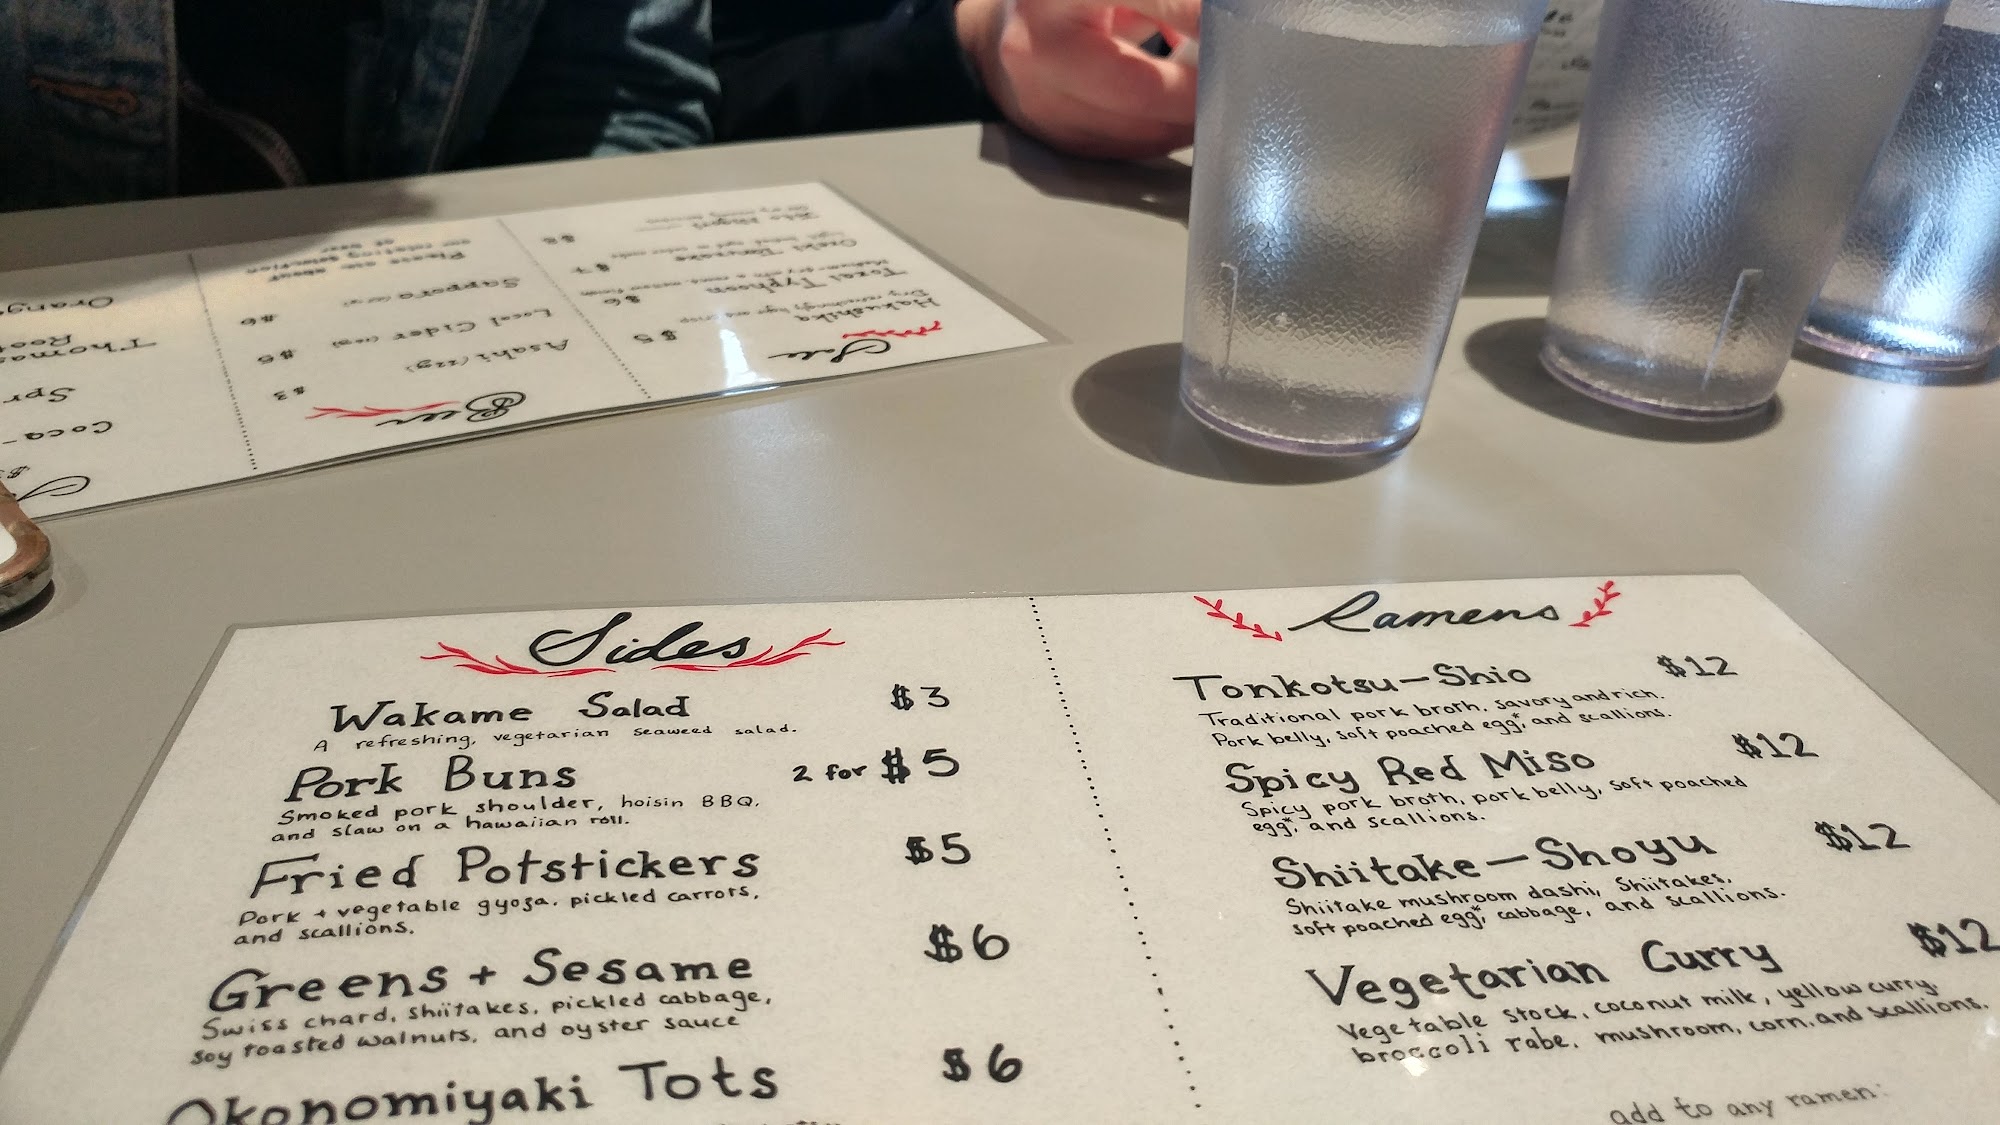 Sides
Wakame Salad $3
A refreshing, vegetarian seaweed salad.
Pork Buns 2 for $5
Smoked pork shoulder, hoisin BBQ,
and slaw on a hawaiian roll.
Fried Potstickers $5
Pork + vegetable gyoza, pickled carrots,
and scallions.
Greens + Sesame $6
Swiss chard, shiitakes, pickled cabbage,
soy toasted walnuts, and oyster sauce
Okonomiyaki Tots $6
Ramens
Tonkotsu-Shio $12
Traditional pork broth, savory and rich.
Pork belly, soft poached egg*, and scallions.
Spicy Red Miso $12
Spicy pork broth, pork belly, soft poached
egg*, and scallions.
Shiitake-Shoyu $12
Shiitake mushroom dashi, Shiitakes,
soft poached egg*, cabbage, and scallions.
Vegetarian Curry $12
Vegetable stock, coconut milk, yellow curry,
broccoli rabe, mushroom, corn, and scallions.
add to any ramen:
Sake
Hakushika $5
Tozai Typhoon $6
Ozeki $7
$8
Beer
Asahi $3
Local Cider $5
Sapporo $6
Please ask about
our rotating selection
of beer
Coca-
Spr
Thomas
Root
Orang